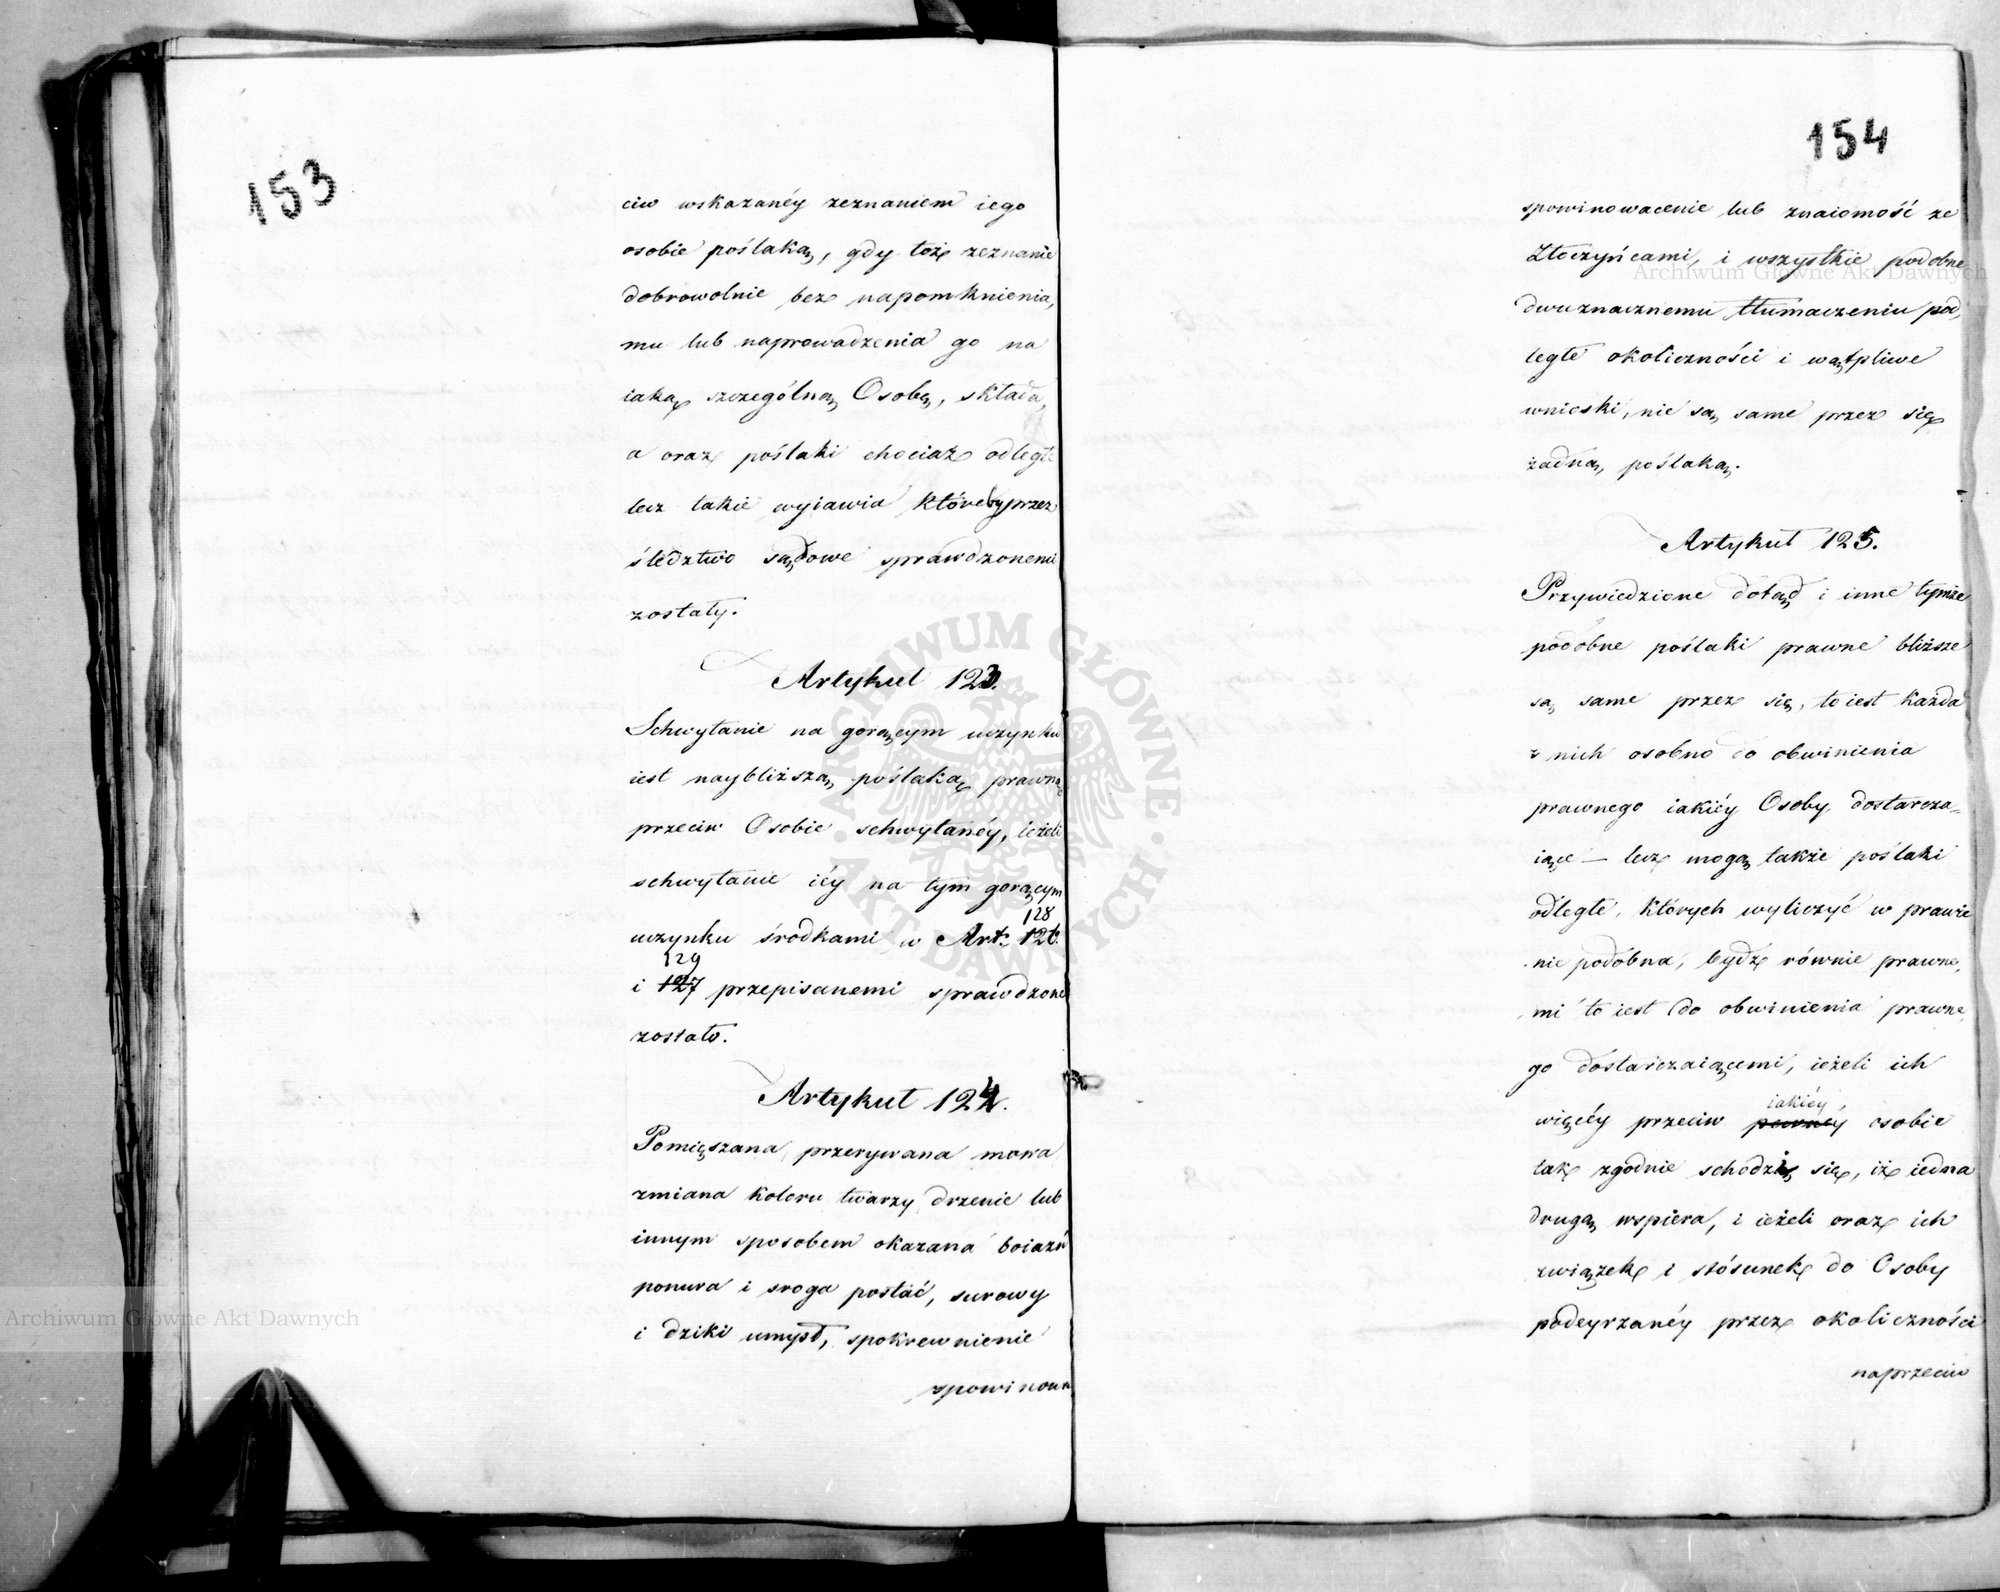 153
ciw wskazanéy zeznaniem iego
osobie poślaką, gdy toż zeznanie
dobrowolnie bez napomknienia,
mu lub naprowadzenia go na
iaką szczególną Osobę, składa,
a oraz poślaki chociaż odległe
lecz takie wyiawia któreby przez
śledztwo sądowe sprawdzonemi
zostały.
Artykuł 123.
Schwytanie na gorącym uczynku
iest naybliższą poślaką prawną
przeciw Osobie schwytanéy, ieżeli
schwytanie iéy na tym gorącym
128
uczynku środkami w Art: 126.
129
i 127 przepisanemi sprawdzone
zostało.
Artykuł 124.
Pomięszana, przerywana mowa
zmiana koloru twarzy, drzenie lub
innym sposobem okazana boiaźń
ponura i sroga postać, surowy
i dziki umysł, spokrewnienie
spowinowa
154
spowinowacenie lub znaiomość ze
Złoczyńcami, i wszystkie podobne
dwuznacznemu tłumaczeniu pod,
ległe okoliczności i wątpliwe
wnioski, nie są same przez się
żadną poślaką.
Artykuł 125.
Przywiedzione dotąd i inne tymże
podobne poślaki prawne bliższe
są same przez się, to iest każda
z nich osobno do obwinienia
prawnego iakiéy Osoby dostarcza-
iące — lecz mogą także poślaki
odległe, których wyliczyć w prawie
nie podobna, bydź równie prawne,
mi to iest do obwinienia prawne,
go dostarczaiącemi, ieżeli ich
iakiéy
więcéy przeciw pewnéy osobie
tak zgodnie schodzi się, iż iedna
drugą wspiera, i ieżeli oraz ich
związek i stósunek do Osoby
podeyrzanéy przez okoliczności
naprzeciw
Archiwum Główne Akt Dawnych
Archiwum Główne Akt Dawnych
ARCHIWUM GŁÓWNE · AKT DAWNYCH ·